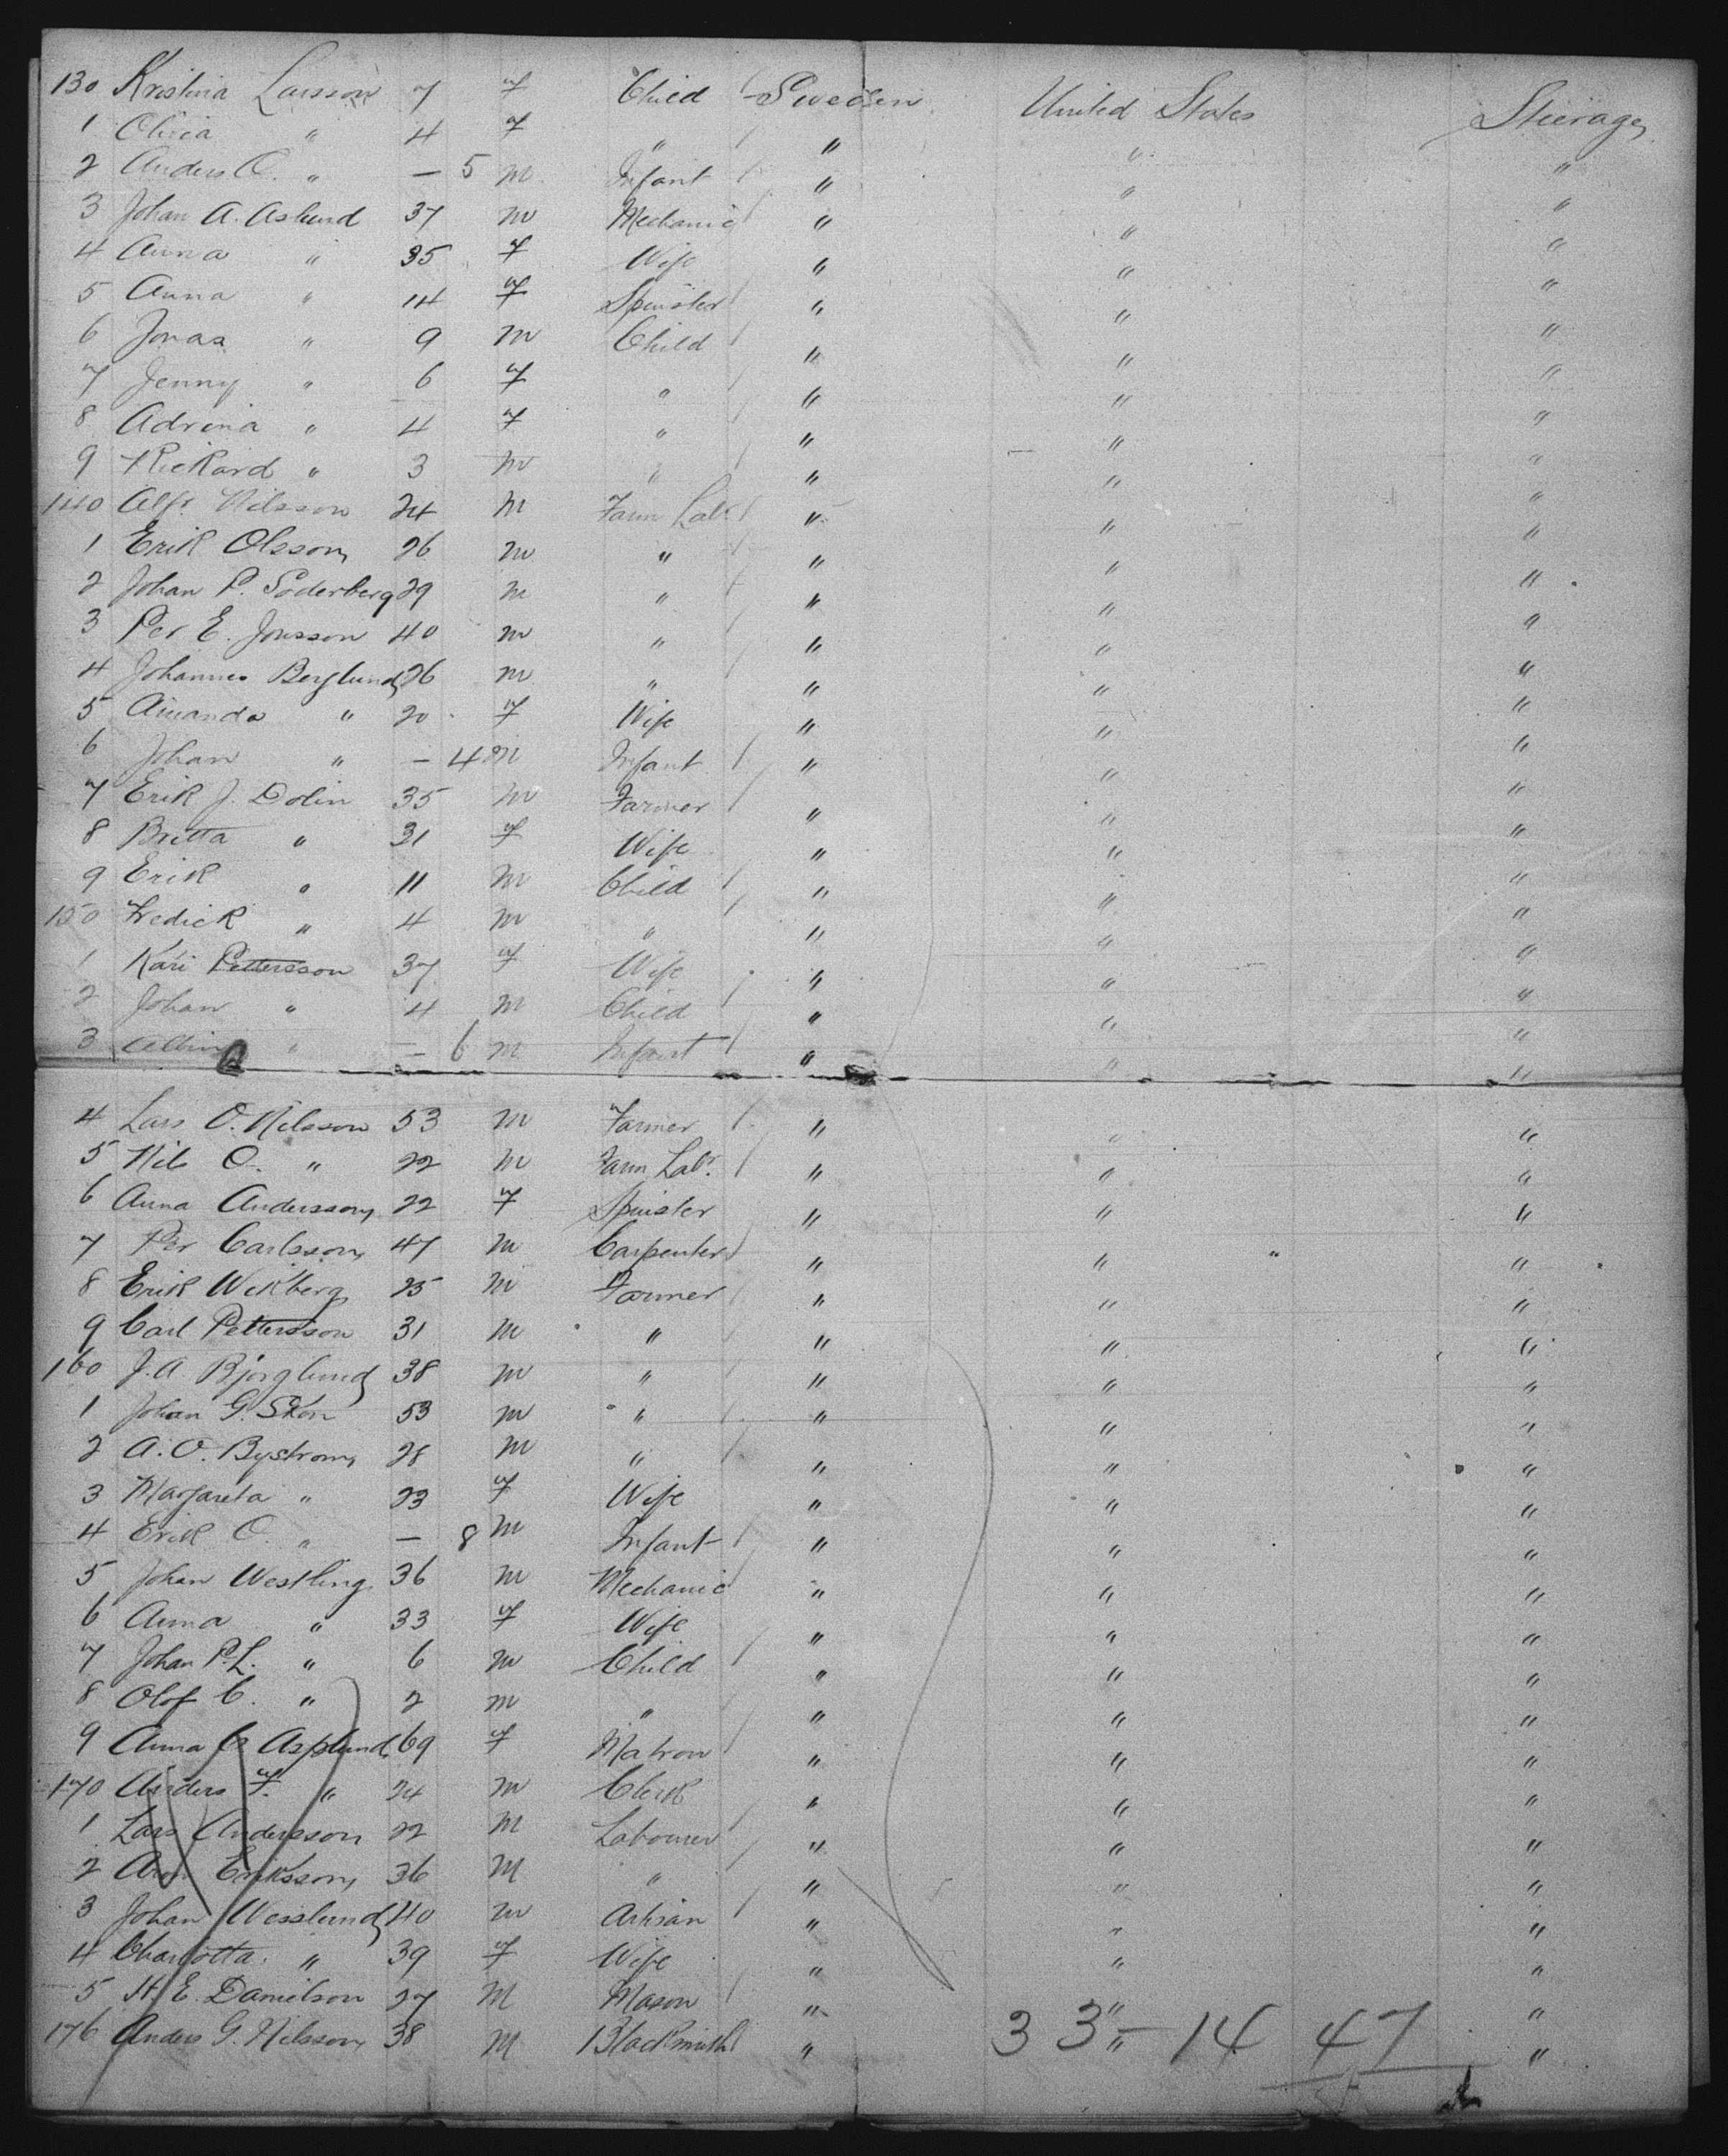 130 Kristina Larsson 7 f Child Sweden United States Steerage
1 Olivia " 4 f " " " "
2 Anders O. " — 5 m Infant " " "
3 Johan A. Aslund 37 m Mechanic " " "
4 Anna " 35 f Wife " " "
5 Anna " 14 f Spinster " " "
6 Jonas " 9 m Child " " "
7 Jenny " 6 f " " " "
8 Adrina " 4 f " " " "
9 Rickard " 3 m " " " "
140 Alfr. Nilsson 24 m Farm Labr " " "
1 Erik Olsson 26 m " " " "
2 Johan P. Söderberg 29 m " " " "
3 Per E. Jonsson 40 m " " " "
4 Johannes Berglund 26 m " " " "
5 Amanda " 20 f Wife " " "
6 Johan " — 4 m Infant " " "
7 Erik J. Dolin 35 m Farmer " " "
8 Britta " 31 f Wife " " "
9 Erik " 11 m Child " " "
150 Fredick " 4 m " " " "
1 Kari Pettersson 37 f Wife " " "
2 Johan " 4 m Child " " "
3 Albin " — 6 m Infant " " "
4 Lars O. Nilsson 53 m Farmer " " "
5 Nils O. " 22 m Farm Labr. " " "
6 Anna Andersson 22 f Spinster " " "
7 Per Carlsson 47 m Carpenter " " "
8 Erik Wikberg 25 m Farmer " " "
9 Carl Pettersson 31 m " " " "
160 J. A. Bjorglund 38 m " " " "
1 Johan G. Skon 53 m " " " "
2 A. O. Bystrom 28 m " " " "
3 Margareta " 23 f Wife " " "
4 Erik O. " — 8 m Infant " " "
5 Johan Westling 36 m Mechanic " " "
6 Anna " 33 f Wife " " "
7 Johan P. L. " 6 m Child " " "
8 Olof C. " 2 m " " " "
9 Anna C. Asplund 69 f Matron " " "
170 Anders F. " 24 m Clerk " " "
1 Lars Andersson 22 m Labourer " " "
2 Eriksson 36 m " " " "
3 Johan Wesslund 40 m Artisan " " "
4 Charlotta " 39 f Wife " " "
5 H. E. Danielson 27 m Mason " " "
176 Anders G. Nilsson 38 m Blacksmith " " "
33 — 14 47